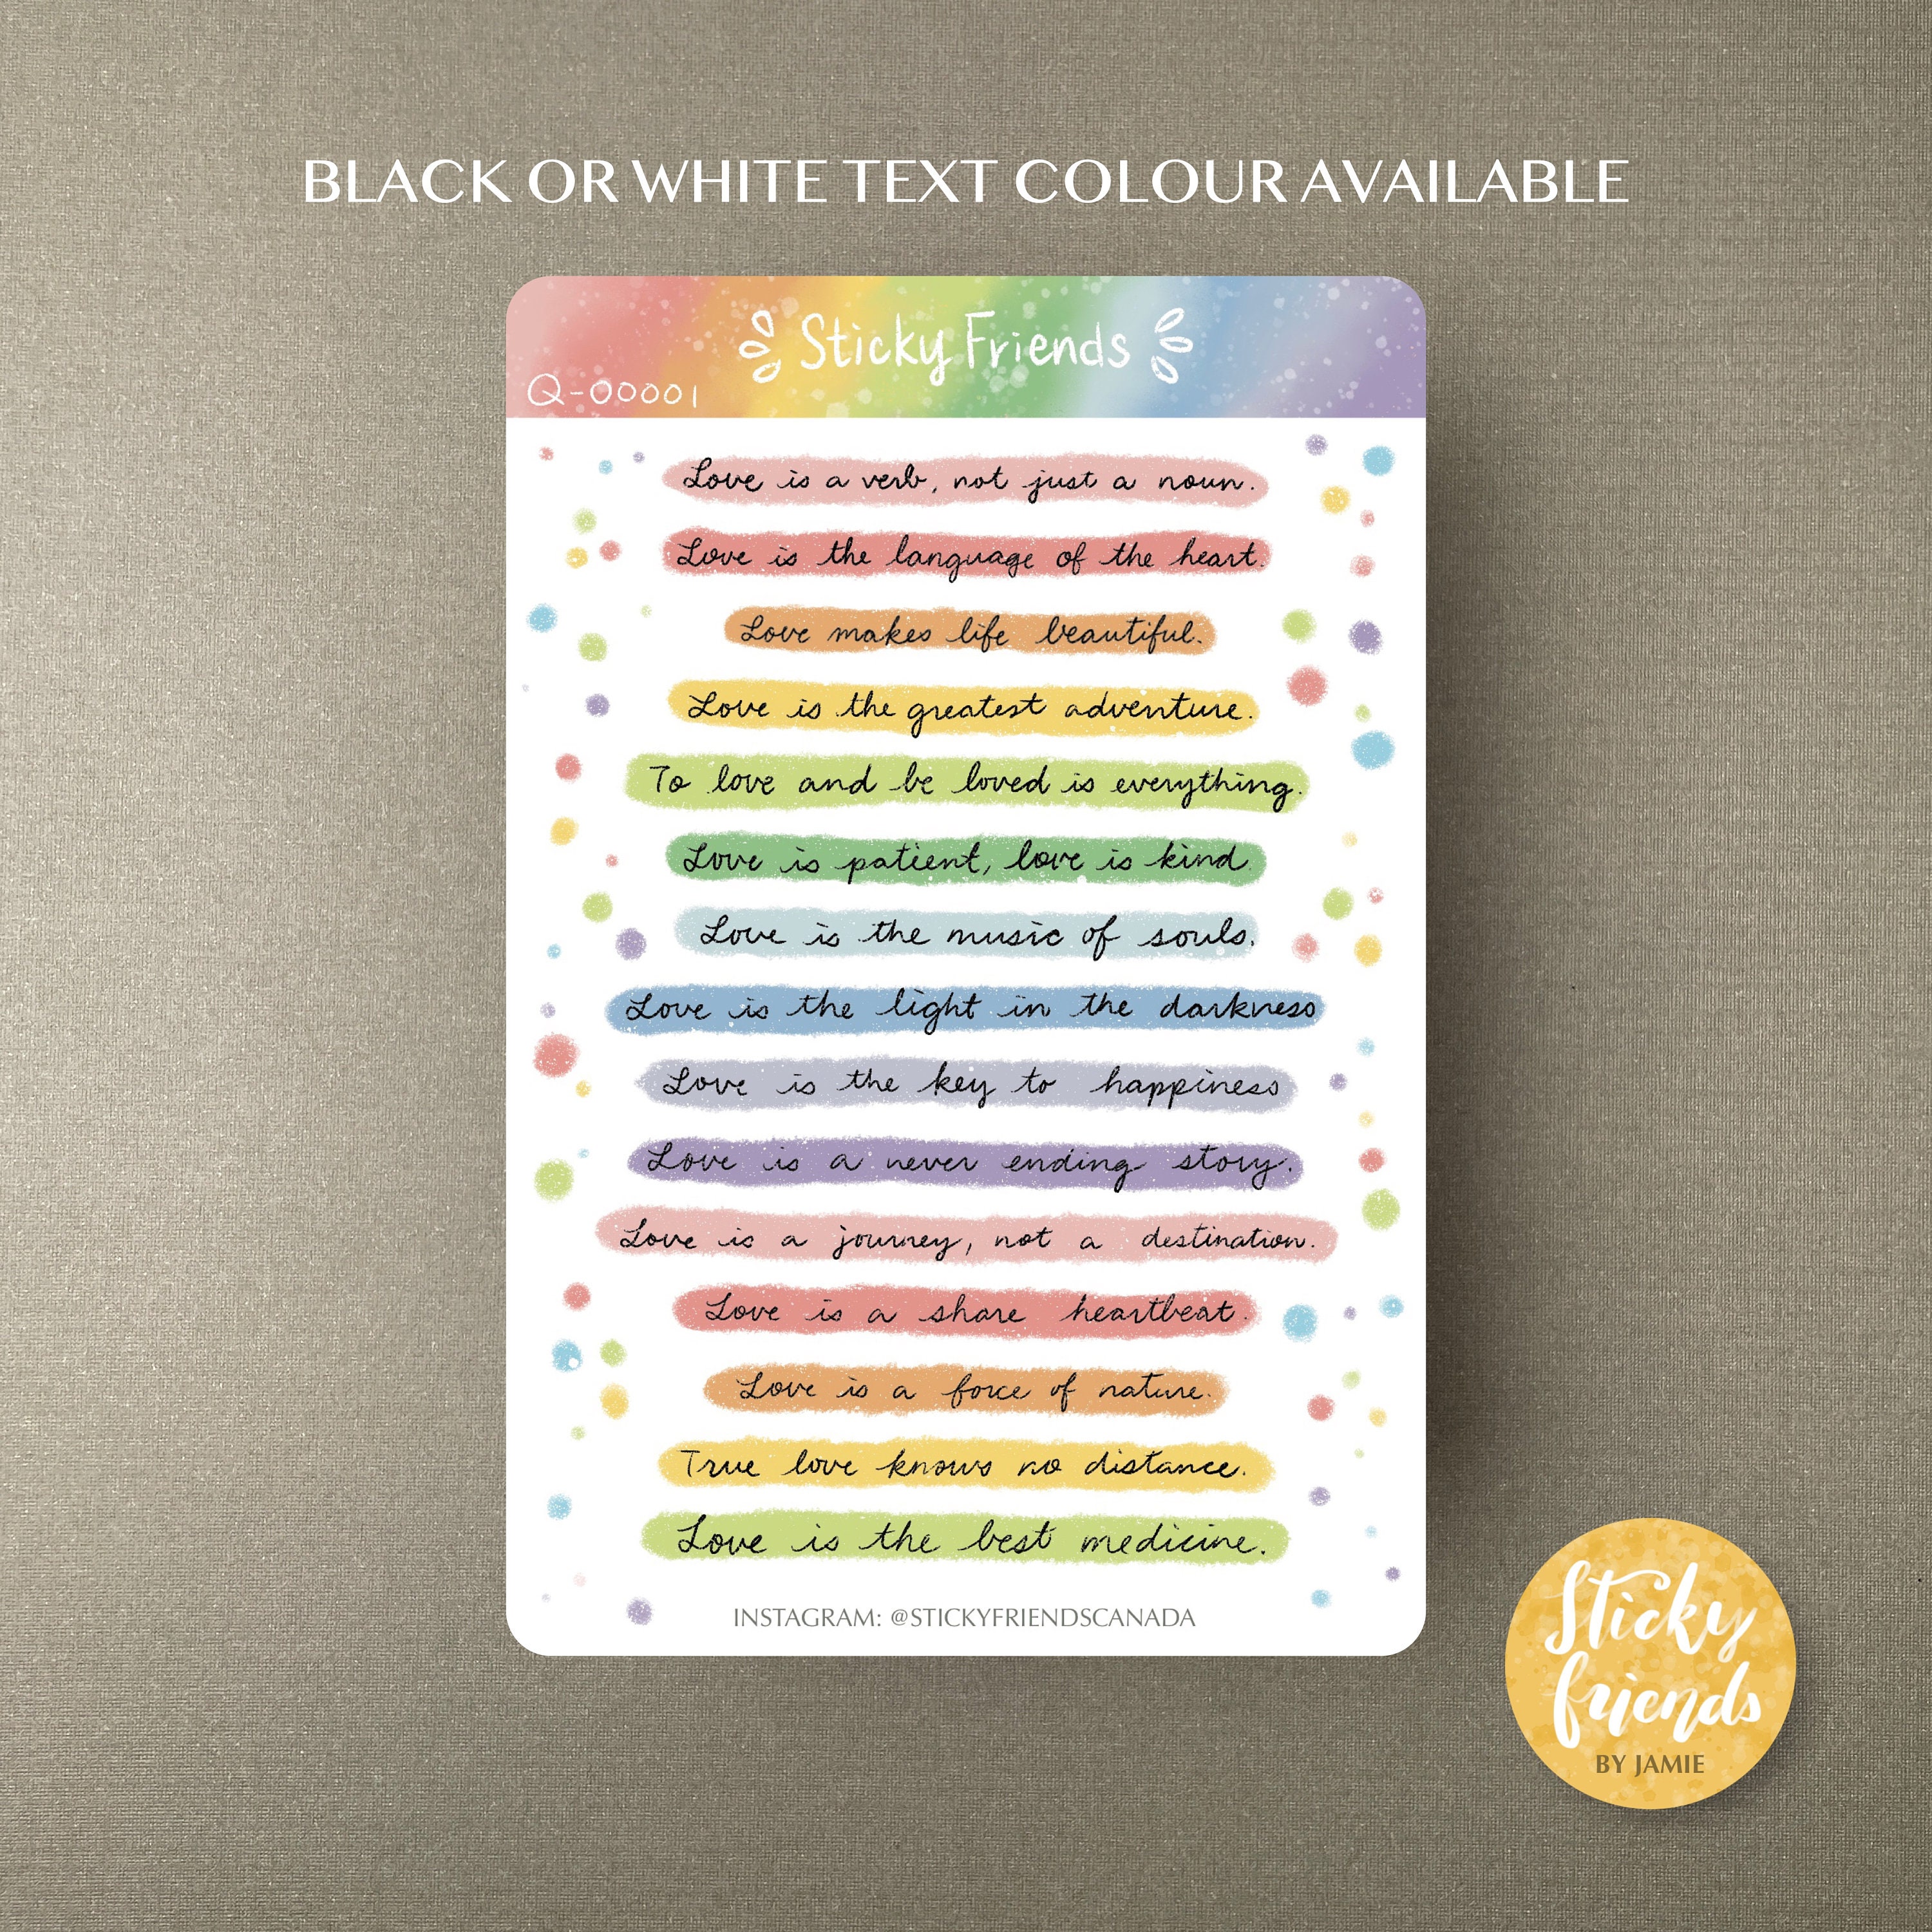 BLACK OR WHITE TEXT COLOUR AVAILABLE
Sticky Friends
Q-00001
Love is a verb, not just a noun.
Love is the language of the heart.
Love makes life beautiful.
Love is the greatest adventure.
To love and be loved is everything.
Love is patient, love is kind.
Love is the music of souls.
Love is the light in the darkness
Love is the key to happiness
Love is a never ending story.
Love is a journey, not a destination.
Love is a share heartbeat.
Love is a force of nature.
True love knows no distance.
Love is the best medicine.
INSTAGRAM: @STICKYFRIENDSCANADA
Sticky
friends
BY JAMIE